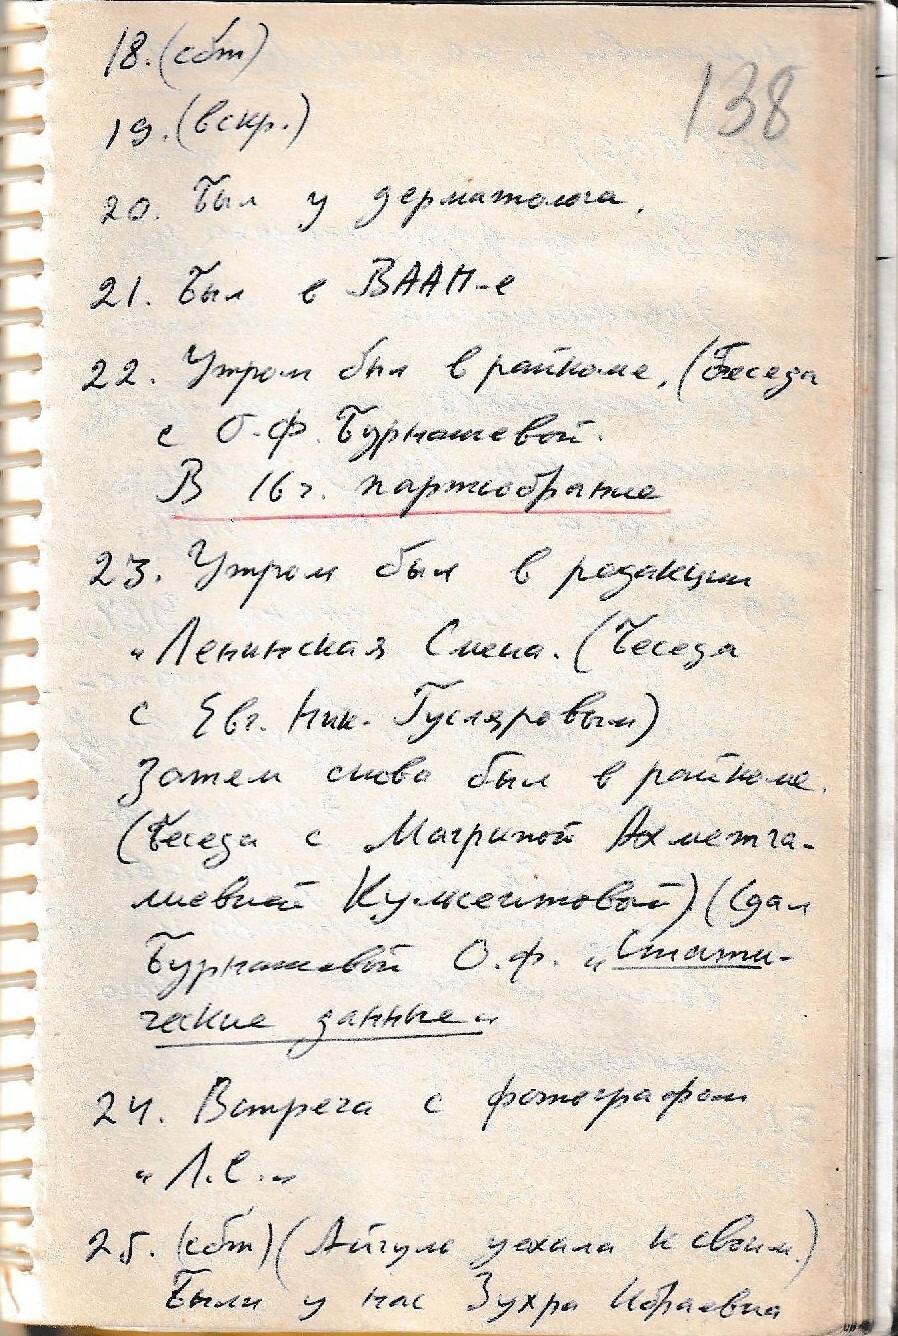 138
18. (сбт)
19. (вскр.)
20. Был у дерматолога.
21. Был в ВААП-е
22. Утром был в райкоме. (Беседа
с О.Ф. Бурнашевой.
В 16 ч. партсобрание
23. Утром был в редакции
„Ленинская Смена. (Беседа
с Евг. Ник. Гусляровым)
Затем снова был в райкоме.
(Беседа с Магрипой Ахметга-
лиевной) (Сдал
Бурнашевой О.Ф. „Стати-
ческие данные"
24. Встреча с фотографом
„Л.С."
25. (сбт) (Айгуль уехала к своим.)
Были у нас Зухра